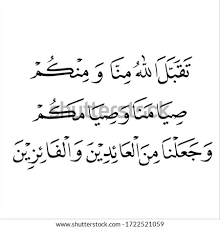 تَقَبَّلَ اللهُ مِنَّا وَمِنْكُمْ
صِيَامَنَا وَصِيَامَكُمْ
وَجَعَلْنَا مِنَ الْعَائِدِيْنَ وَالْفَائِزِيْنَ
shutterstock
www.shutterstock.com · 1722521059